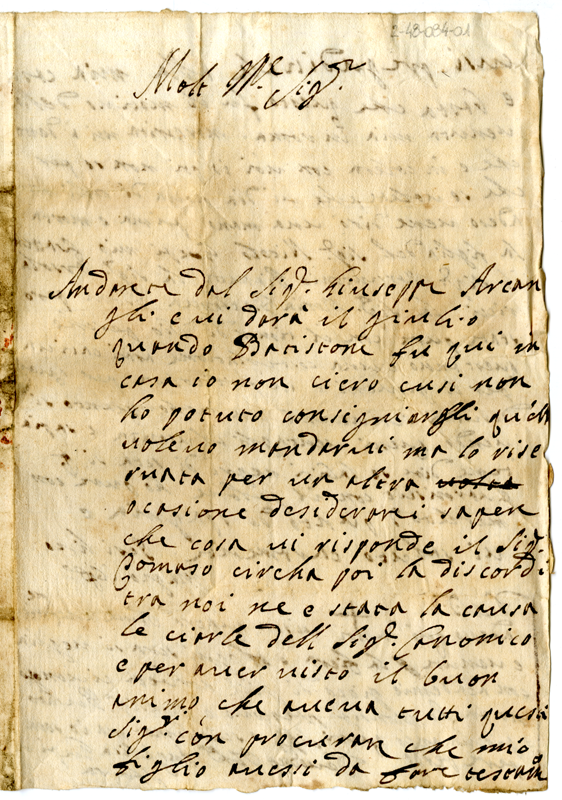 2-48-034-01
Molt M.e Sig.r
Andarete dal Sig.r Giuseppe Arcan
gli e vi darà il giulio
quando Batistone fu qui in
casa io non ciero cusi non
ho potuto consigniargli quell
volevo mandarvi ma lo rise
rvata per un altra volta
ocasione desiderarei sapere
che cosa vi risponde il Sig.r
Tomaso circha poi la discordi
tra noi ne e stata la causa
le ciarle dell Sig.r Canonico
e per aver visto il buon
animo che aveva tutti questi
Sig.ri con procurar che mio
figlio avessi da fare testam